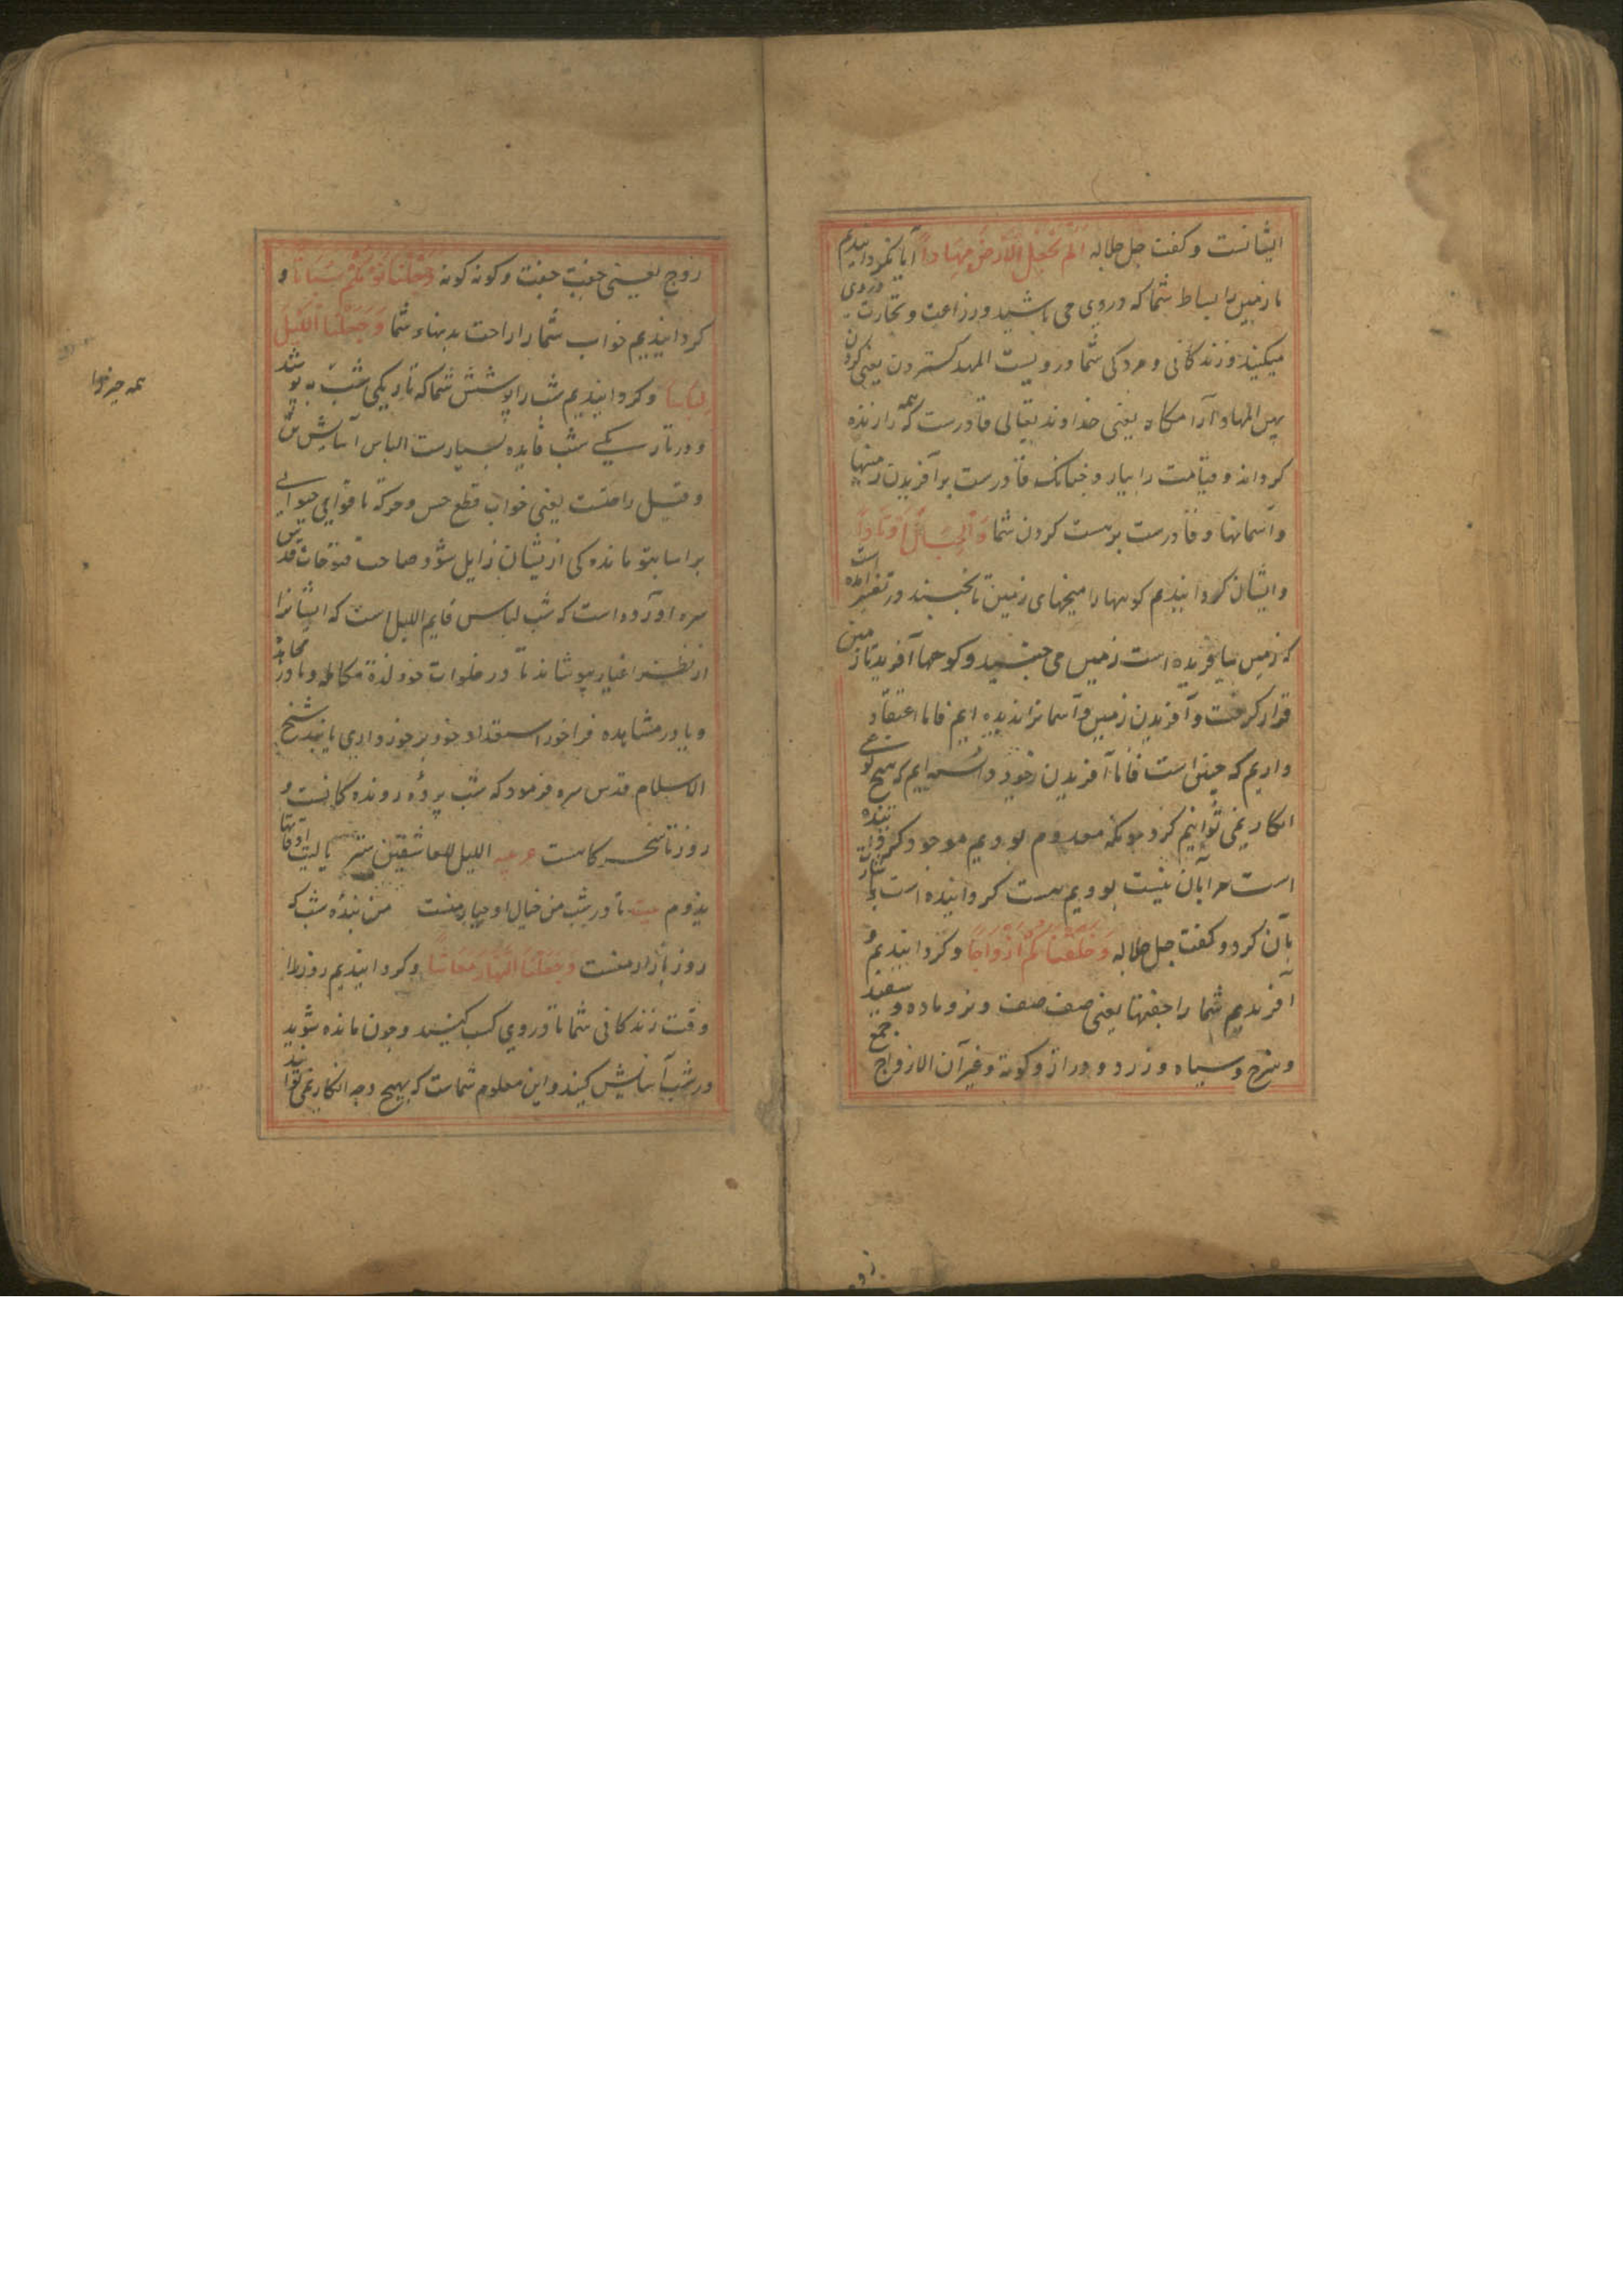 ایشانست و کفت جل جلاله الم نجعل الارض مهادا آیا نکردانیدیم
ما زمین را بساط شما که در وی می باشید و زراعت و تجارت در وی
میکنید و زندکانی و مردکی شما در ویست المهد کستردن یعنی کردن
پس المهاد آرامکاه یعنی خداوند تعالی قادرست که همه را زنده
کرداند و قیامت را بیارد چنانک قادرست بر آفریدن زمینها
و آسمانها و قادرست بر هست کردن شما والجبال اوتادا
و ایشان کردانیدیم کوهها را میخهای زمین تا نجنبند در تفسیر آمده است
که زمین بیافریده است زمین می جنبید و کوهها آفرید تا زمین
قرار کرفت و آفریدن زمین و آسمانرا ندیده ایم فاما اعتقاد
داریم که چنین است فاما آفریدن خود دانسته ایم که هیچ نوعی
انکار نمی توانیم کرد چونکه معدوم بودیم موجود کرداننده
است مرا بآن نیست بودیم هست کردانیده است
بآن کرد و کفت جل جلاله وخلقناکم ازواجا و کردانیدیم و
آفریدیم شما را جفتها یعنی صنف صنف و نر و ماده و سفید
و سرخ و سیاه و زرد و دراز و کوته و غیر آن الازواج جمع
زوج یعنی جفت جفت و کونه کونه وجعلنا نومکم سباتا و
کردانیدیم خواب شما را راحت بدنهاء شما وجعلنا اللیل
لباسا و کردانیدیم شب را پوشش شما که تاریکی شب به پوشد
و در تاریکی شب فایده بسیارست الباس آسایش تن
و قیل راحتست یعنی خواب قطع حس و حرکة با قوای حیوانی
بر اساید تو مانده کی از یشان زایل شود صاحب فتوحات قدس
سره آورده است که شب لباس قایم اللیل است که ایشانرا
از نظر اغیار بپوشاند تا در خلوات خود لذة مکالمه و یا در محابه
و یا در مشاهده فراخور استعداد خود برخورداری یابند شیخ
الاسلام قدس سره فرمود که شب پرده روندهکانست و
روز تا سحرکاهست عربیه اللیل للعاشقین ستر یا لیت اوقاتها
یدوم بیت تا در شب من خیال او یار منست من بنده شب که
روز بازار منست وجعلنا النهار معاشا و کردانیدیم روز را
وقت زندکانی شما تا در وی کسب کنید و چون مانده شوید
در شب آسایش کنید و این معلوم شماست که بهیچ وجه انکار نمی توانید
همه چیزها